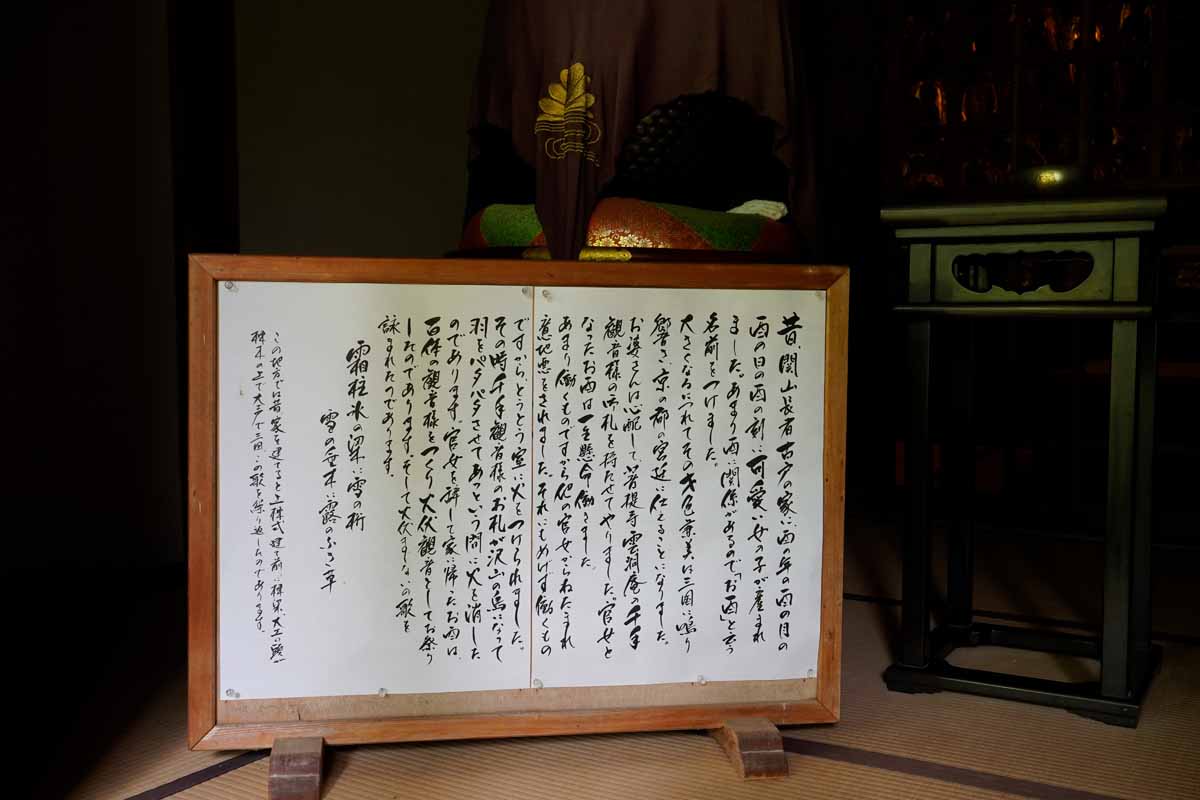 昔、関山長者古戸の家に酉の年の酉の月の
酉の日の酉の刻に可愛い女の子が産まれ
ました。あまり酉に関係があるので「お酉」と云う
名前をつけました。
大きくなるにつれてその才色兼美は三国に鳴り
響き、京の都の宮廷に仕えることになりました。
お婆さんは心配して、菩提寺雲洞庵の千手
観音様の御札を持たせてやりました。官女と
なったお酉は一生懸命働きました。
あまり働くものですから他の官女からねたまれ
意地悪をされました。それにもめげず働くもの
ですから、とうとう室に火をつけられました。
その時千手観音様のお札が沢山の鳥になって
羽をバタバタさせてあっという間に火を消した
のであります。官女を辞して家に帰ったお酉は、
百体の観音様をつくり火伏観音としてお祭り
したのであります。そして火伏まじないの歌を
詠まれたのであります。
霜柱氷の梁に雪の桁
雪の垂木に露のふき草
この地方では昔家を建てると上棟式
棟木の上で大声で三回、この歌を繰り返したのであります。